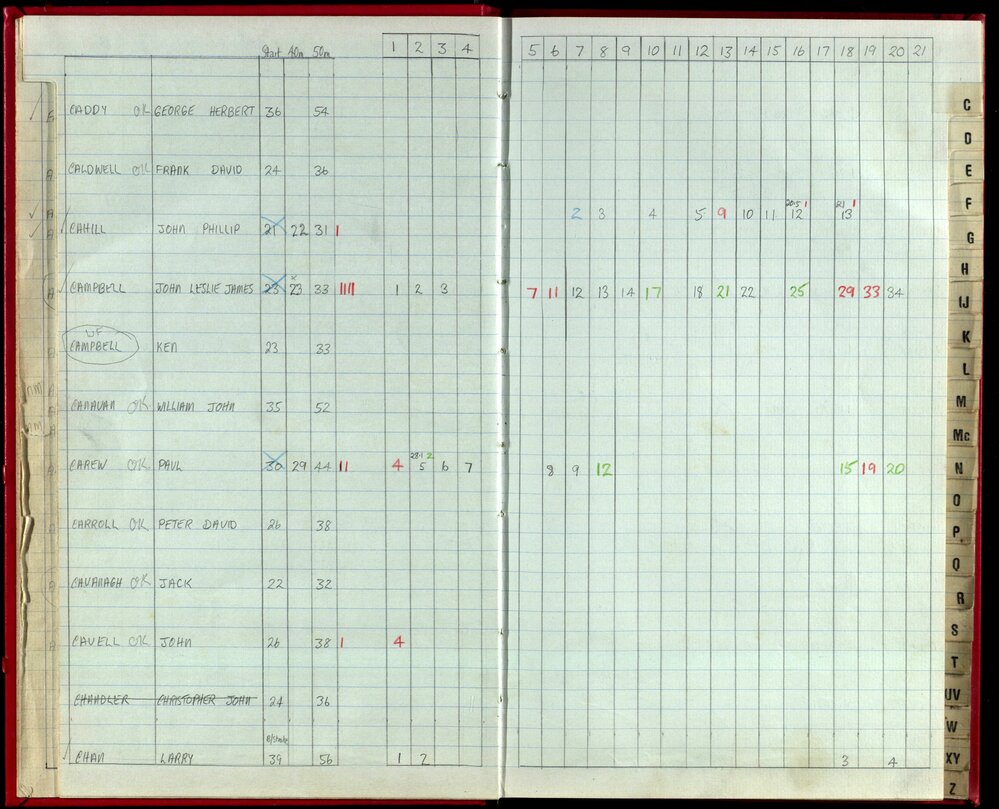 Start 40m 50m 1 2 3 4 5 6 7 8 9 10 11 12 13 14 15 16 17 18 19 20 21
CADDY OK GEORGE HERBERT 36 54
CALDWELL OK FRANK DAVID 24 36
CAHILL JOHN PHILLIP 21 22 31 1 2 3 4 5 9 10 11 20.5 1 12 21 1 13
CAMPBELL JOHN LESLIE JAMES 23 x 23 33 1 2 3 7 11 12 13 14 17 18 21 22 25 29 33 34
UF
CAMPBELL KEN 23 33
CANAVAN OK WILLIAM JOHN 35 52
CAREW OK PAUL 30 29 44 11 4 28.1 2 5 6 7 8 9 12 15 19 20
CARROLL OK PETER DAVID 26 38
CAVANAGH OK JACK 22 32
CAVELL OK JOHN 26 38 1 4
CHANDLER CHRISTOPHER JOHN 24 36
B/stroke
CHAN LARRY 39 56 1 2 3 4
C
D
E
F
G
H
IJ
K
L
M
Mc
N
O
P
Q
R
S
T
UV
W
XY
Z